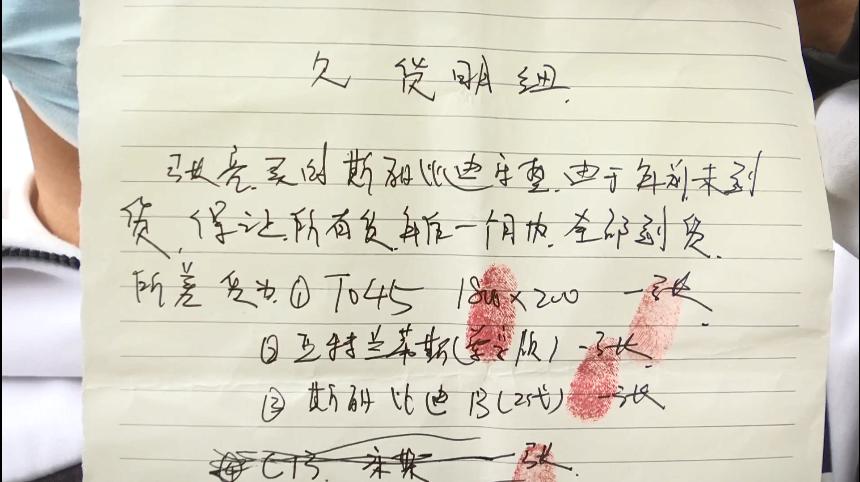 欠货明细
张亮买的斯耐比迪床垫.由于年前未到
货,保证所有货年后一个月内,全部到货.
所差货为①T045 180×200 一张.
②亚特兰蒂斯(学生版)一张
③斯耐比迪B(2代)一张
张